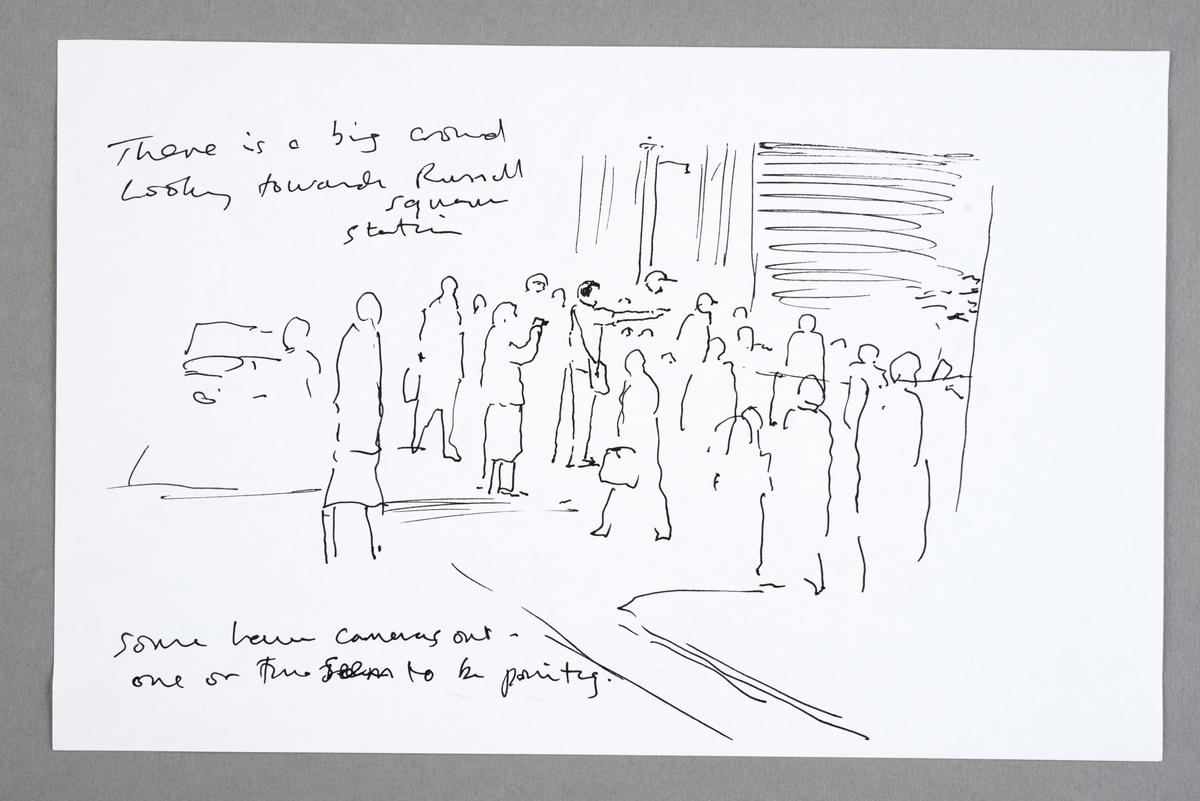 There is a big crowd
Looking towards Russell
square
station
Some have cameras out -
one or two seem to be pointing.